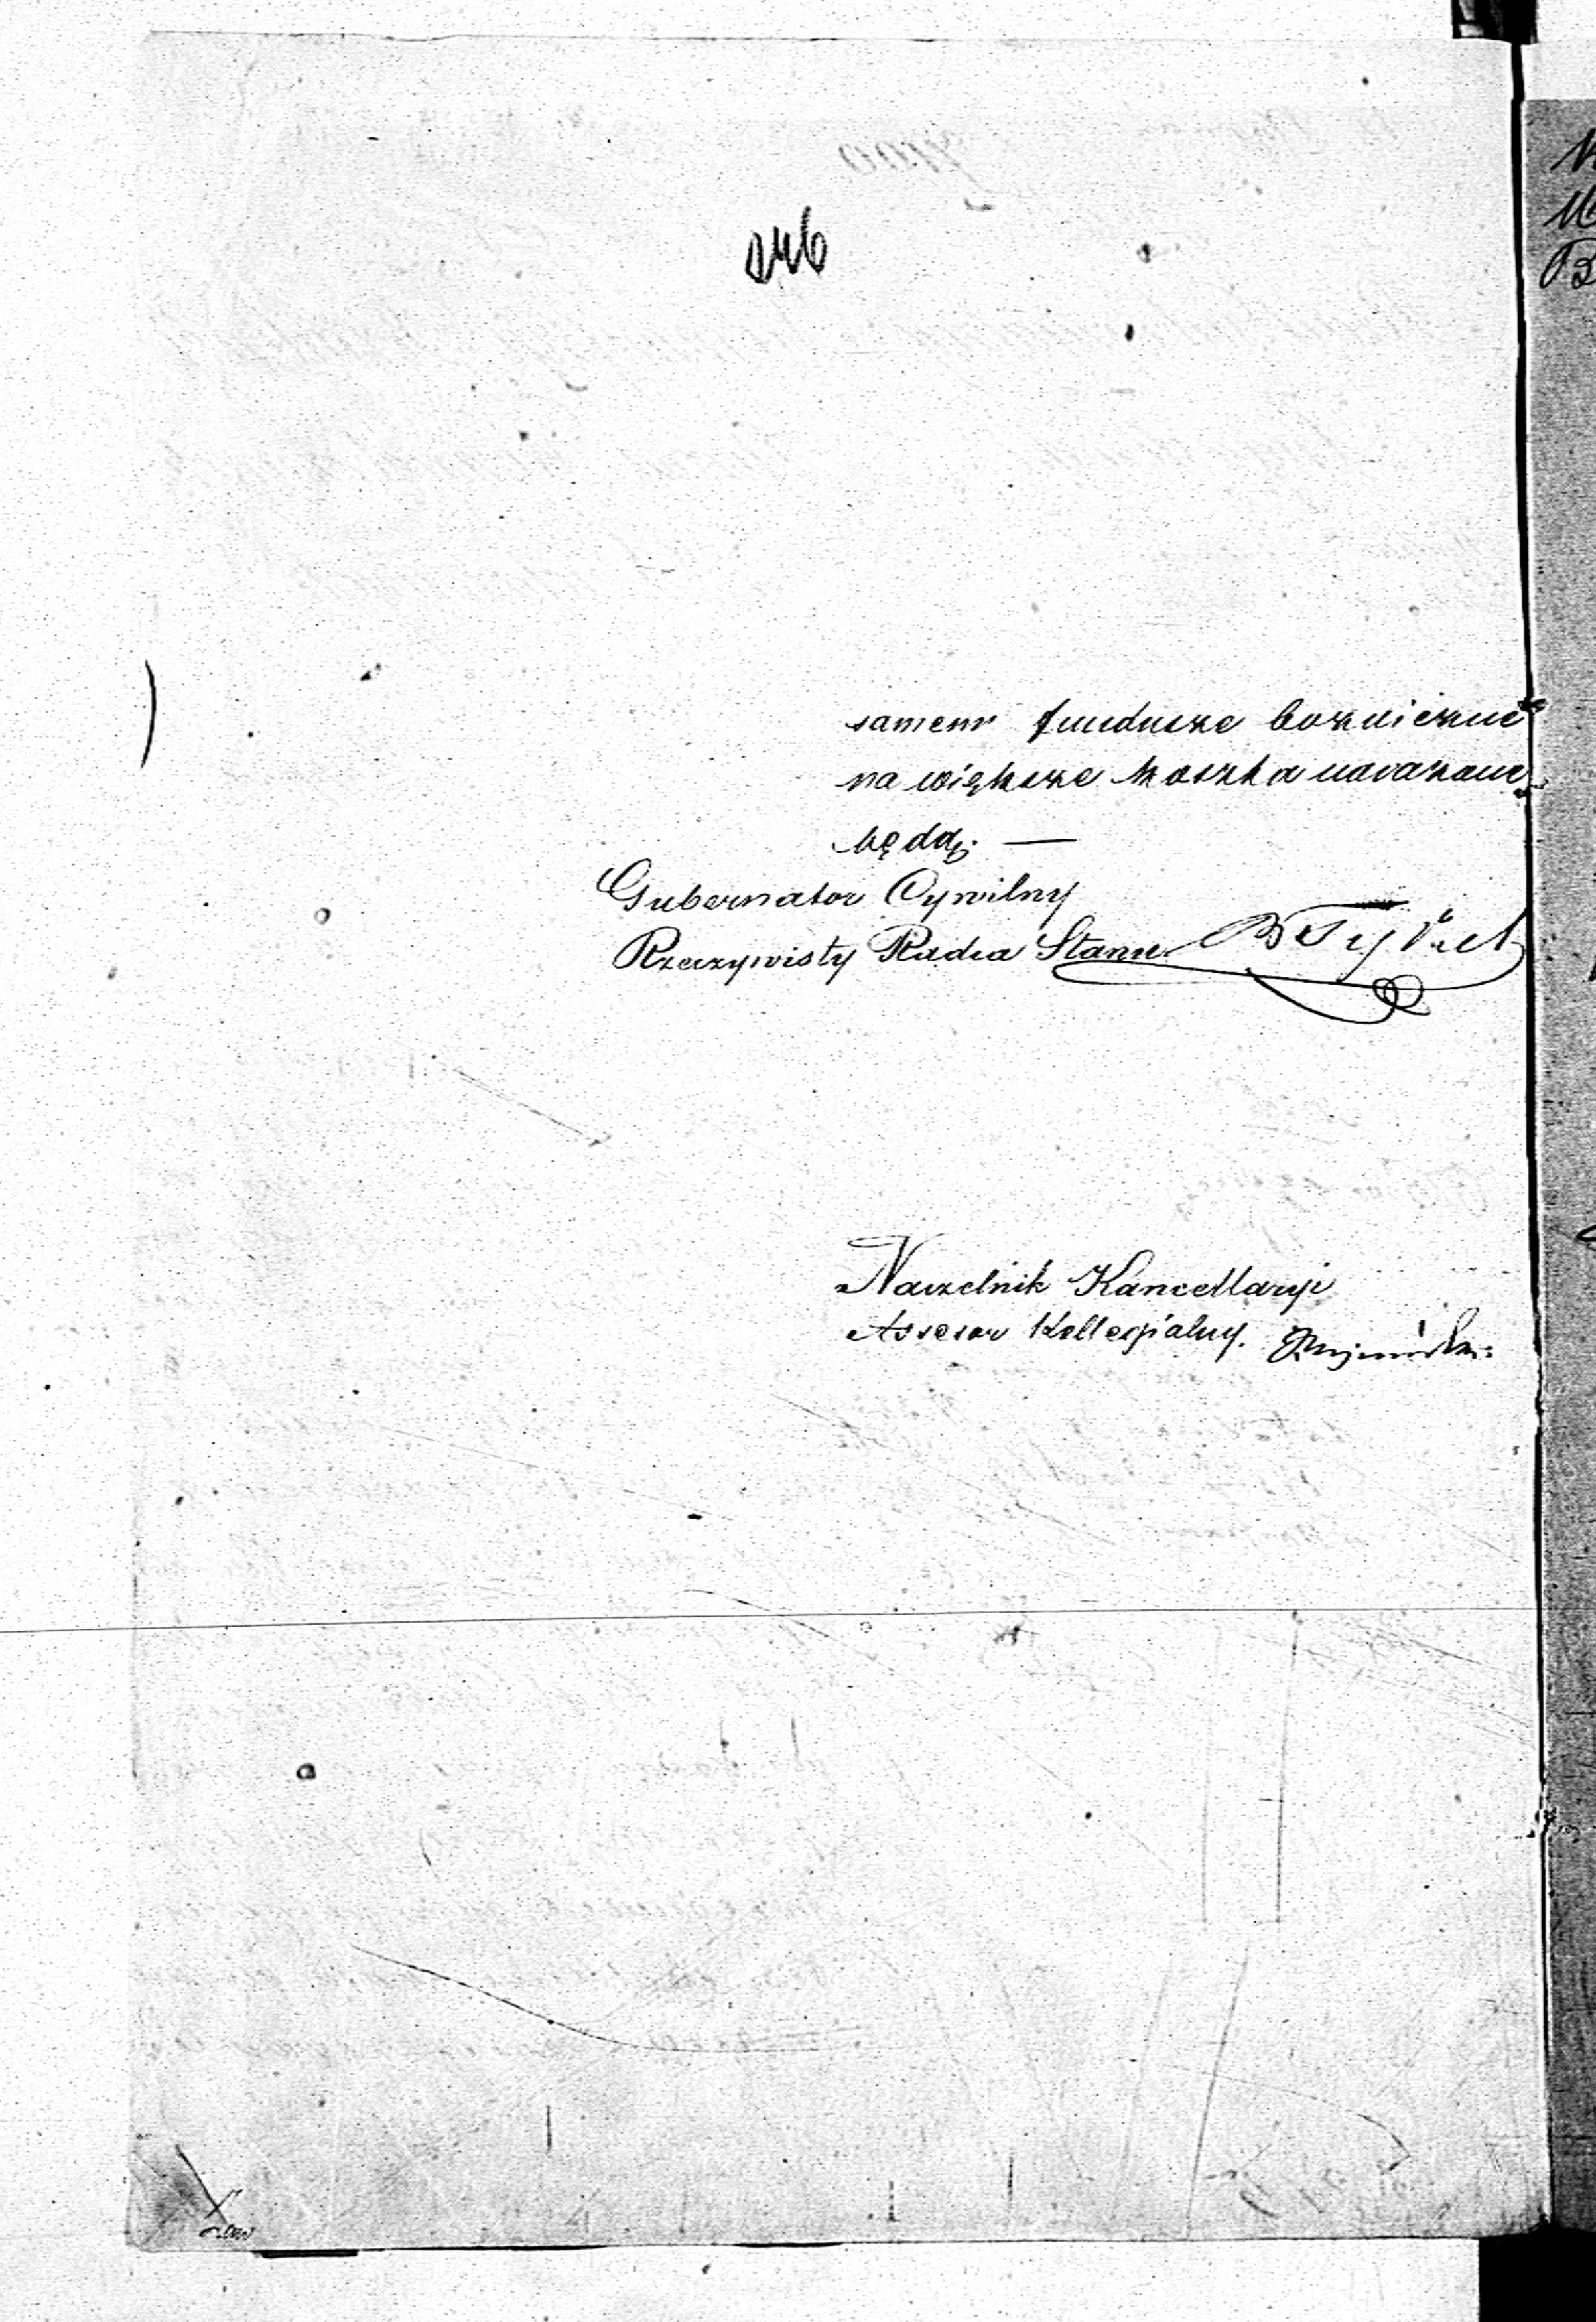 046
samem fundusze bożniczne
na większe koszta narażone
będą. —
Gubernator Cywilny
Rzeczywisty Radca Stanu
Naczelnik Kancellaryi
Assesor Kollegialny.